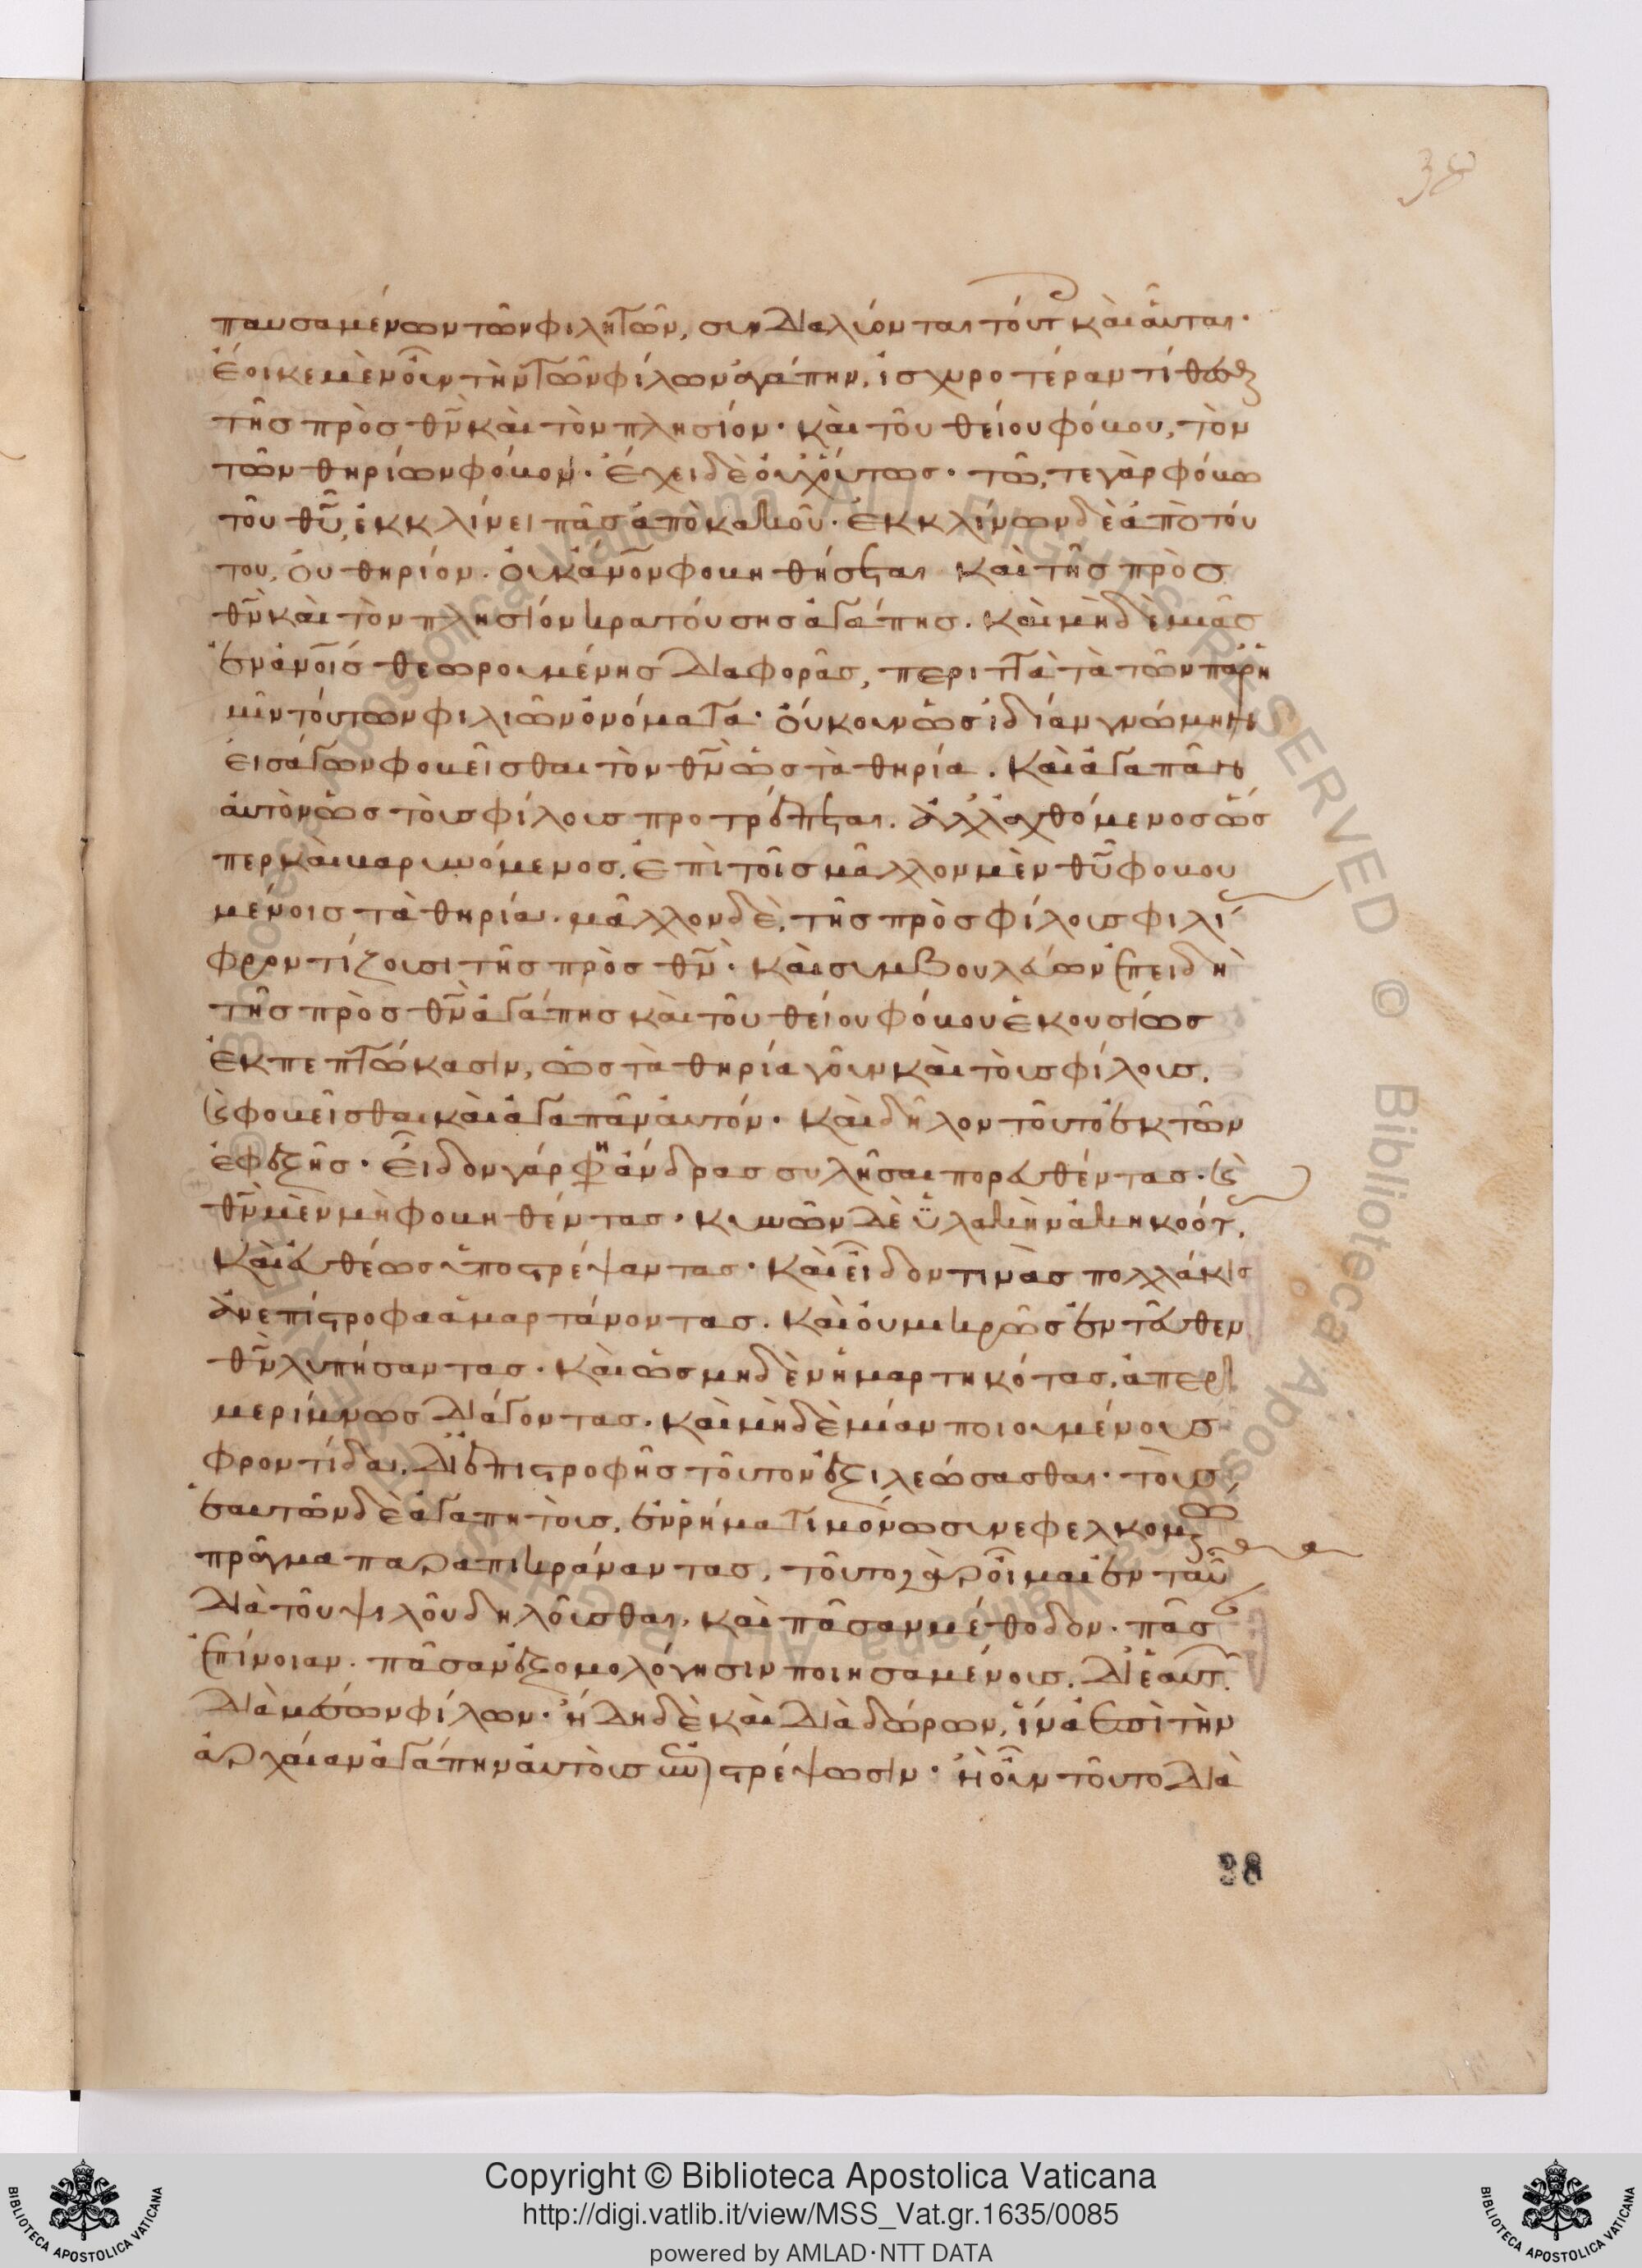 38
παυσαμένων τῶν φιλητῶν, συνδιαλύονται τούτ καὶ αὗται·
ἔοικε μὲν οὖν τὴν τῶν φίλων ἀγάπην, ἰσχυροτέραν τίθεσθ
τῆς πρὸς θν̅ καὶ τὸν πλησίον· καὶ τοῦ θείου φόβου, τὸν
τῶν θηρίων φόβον· ἔχει δὲ οὐχ οὕτως· τῶ, τε γὰρ φόβω
τοῦ θυ̅, ἐκκλίνει πᾶς ἀπὸ κακοῦ· ἐκκλίνων δὲ ἀπὸ τού
του, οὐ θηρίον. οὐκ ἄνον φοβηθήσεται καὶ τῆς πρὸς
θν̅ καὶ τὸν πλησίον κρατούσης ἀγάπης. καὶ μηδὲ μιᾶς
ἐν ἀνοις θεωρουμένης διαφορᾶς, περιττὰ τὰ τῶν παρ' ἡ
μῖν τούτων φιλιῶν ὀνόματα· οὔκουν ὡς ἰδίαν γνώμην
εἰσάγων φοβεῖσθαι τὸν θν̅ ὡς τὰ θηρία. καὶ ἀγαπᾶν
αὐτὸν ὡς τοὺς φίλους προτρέπεται. ἀλλ' ἀχθόμενος ὥς
περ καὶ βαρυνόμενος, ἐπὶ τοῖς μᾶλλον μὲν θυ̅ φοβου
μένοις τὰ θηρία. μᾶλλον δὲ, τῆς πρὸς φίλους φιλί
φροντίζουσι τῆς πρὸς θν̅· καὶ συμβουλεύων ἐπειδὴ
τῆς πρὸς θν̅ ἀγάπης καὶ τοῦ θείου φόβου ἑκουσίως
ἐκπεπτώκασιν, ὡς τὰ θηρία γοῦν καὶ τοὺς φίλους,
καὶ φοβεῖσθαι καὶ ἀγαπᾶν αὐτόν· καὶ δῆλον τοῦτο ἐκ τῶν
ἐφεξῆς· εἶδον γάρ φη ἄνδρας συλῆσαι πορευθέντας· καὶ
θν̅ μὲν μὴ φοβηθέντας· κυνῶν δὲ ὑλακὴν ἀκηκοότ,
καὶ εὐθέως ὑποστρέψαντας· καὶ εἶδον τινὰς πολλάκις
ἀνεπίστροφα ἁμαρτάνοντας. καὶ οὐ μικρῶς ἐντεῦθεν
θν̅ λυπήσαντας· καὶ ὡς μηδὲν ἡμαρτηκότας, ἀπερι
μερίμνως διάγοντας. καὶ μηδὲ μίαν ποιουμένους
φροντίδα, δι' ἐπιστροφῆς τοῦτον ἐξιλεώσασθαι· τοὺς
ἑαυτῶν δὲ ἀγαπητοὺς, ἐν ῥήματι μόνω συνεφελκομ
πρᾶγμα παραπικράναντας, τοῦτο γὰρ οἶμαι ἐνταῦ
διὰ τοῦ ψιλοῦ δηλοῦσθαι, καὶ πᾶσαν μέθοδον. πᾶς
ἐπίνοιαν. πᾶσαν ἐξομολόγησιν ποιησαμένους. δι' ἑαυτ.
διὰ μέσων φίλων· ἤδη δὲ καὶ διὰ δώρων, ἵνα ἐπὶ τὴν
ἀρχαίαν ἀγάπην αὐτοὺς στρέψωσιν· ἢ οὖν τοῦτο διὰ
38
Copyright © Biblioteca Apostolica Vaticana
http://digi.vatlib.it/view/MSS_Vat.gr.1635/0085
powered by AMLAD·NTT DATA